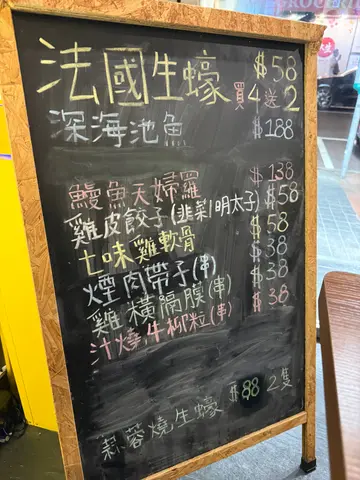 法國生蠔 $58
買4送2
深海池魚 $188
鰻魚天婦羅 $138
雞皮餃子(韭菜/明太子) $58
七味雞軟骨 $58
煙肉帶子(串) $38
雞橫隔膜(串) $38
汁燒牛柳粒(串) $38
蒜蓉燒生蠔 $88 2隻